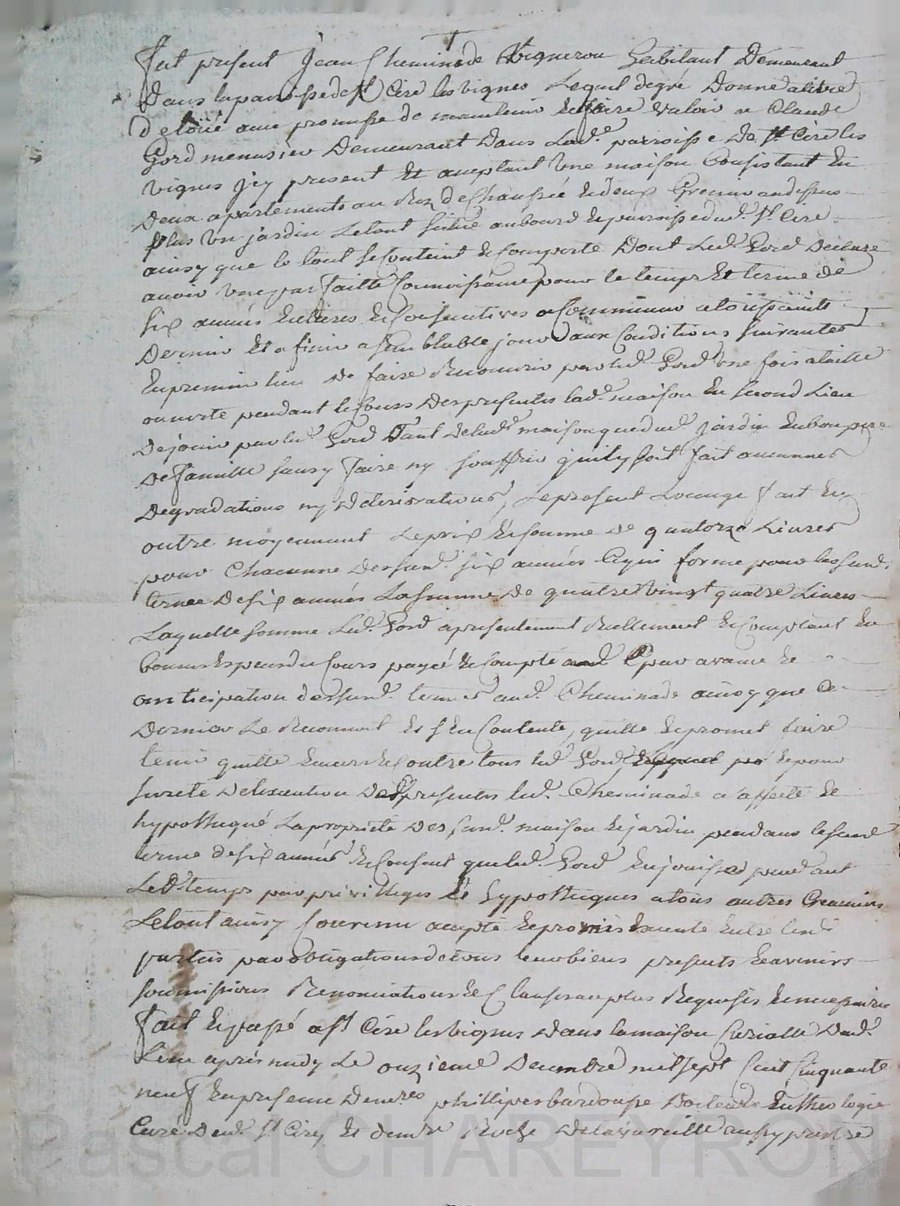 Fut present Jean Cheminade Vigneron habitant Demeurant
Dans la paroisse de st Cire les vignes Lequel de gré Donne a titre
De loué avec promesse de maintenir et faire valoir a Claude
Gord menusier Demeurant Dans Lad.e paroisse De st Cire les
vignes Jcy present Et aceptant Une maison Consistant En
Deux apartements au Rez de Chaussée et deux Greniers au dessus
plus Un jardin Le tout situé au bourd et paroisse dud. st Cire
ainsy que le tout se Contient et Comporte Dont Led. Gord Declare
avoir Une parfaitte Connoissance pour le temps Et terme de
six années Entieres et Consecutives a Commencer
Dernier Et a finir a semblable jour aux Conditions suivantes
En premier lieu De faire par led. Gord Une fois a taille
ouverte pendant le Cours Des presentes lad. maison En second Lieu
De jouir par led. Gord Tant De lad. maison que dud. jardin En bon pere
De famille sans y faire ny souffrir qu'il y soit fait aucunnes
Degradations ny Deteriorations, Le present Louage fait En
outre moyennant Le prix Et somme De quatorze Livres
pour Chacunne Des sud. six années Et qui forme pour le sud.
terme De six années La somme De quatre vingt quatre Livres
Laquelle somme Led. Gord a presentement Reellement et Comptant En
bonnes Especes du Cours payée et Compté aud. par avance Et
anticipation des sud. termes aud. Cheminade ainsy que Ce
Dernier Le Reconnoit Et s'en Contente, quitte et promet faire
tenir quitte Envers Et Contre tous led. Gord Et pour
sureté De l'execution Des presentes led. Cheminade a affecté Et
hypothequé La propriete Des sud. maison Et jardin pendant le sud.
terme de six années Et Consent que led. Gord En jouisse pendant
Led. temps par privilleges Et hypotheques a tous autres Creanciers
Le tout ainsy Convenu acepté Et promis Entre lesd.
parties par obligations de tous leurs biens presents Et avenirs
soumissions Renonciations Et Clauses au plus Requises Et necessaires
Fait Et passé a st Cire les vignes Dans la maison Curialle Dud.
Lieu après midy Le onzieme Decembre mil sept Cent Cinquante
neuf En presence De me phillipes bardousse Docteur En theologie
Curé Dud. st Cire Et de me aussy prestre
Pascal CHAREYRON